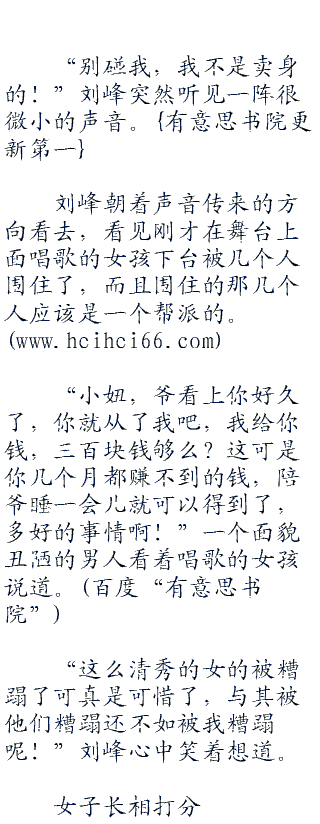 “别碰我，我不是卖身
的！”刘峰突然听见一阵很
微小的声音。{有意思书院更
新第一}
刘峰朝着声音传来的方
向看去，看见刚才在舞台上
面唱歌的女孩下台被几个人
围住了，而且围住的那几个
人应该是一个帮派的。
(www.hcihci66.com)
“小妞，爷看上你好久
了，你就从了我吧，我给你
钱，三百块钱够么？这可是
你几个月都赚不到的钱，陪
爷睡一会儿就可以得到了，
多好的事情啊！”一个面貌
丑陋的男人看着唱歌的女孩
说道。(百度“有意思书
院”)
“这么清秀的女的被糟
蹋了可真是可惜了，与其被
他们糟蹋还不如被我糟蹋
呢！”刘峰心中笑着想道。
女子长相打分